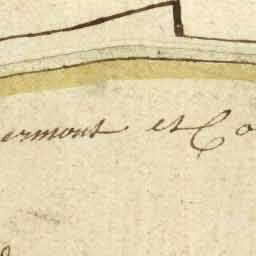 ermont et Co